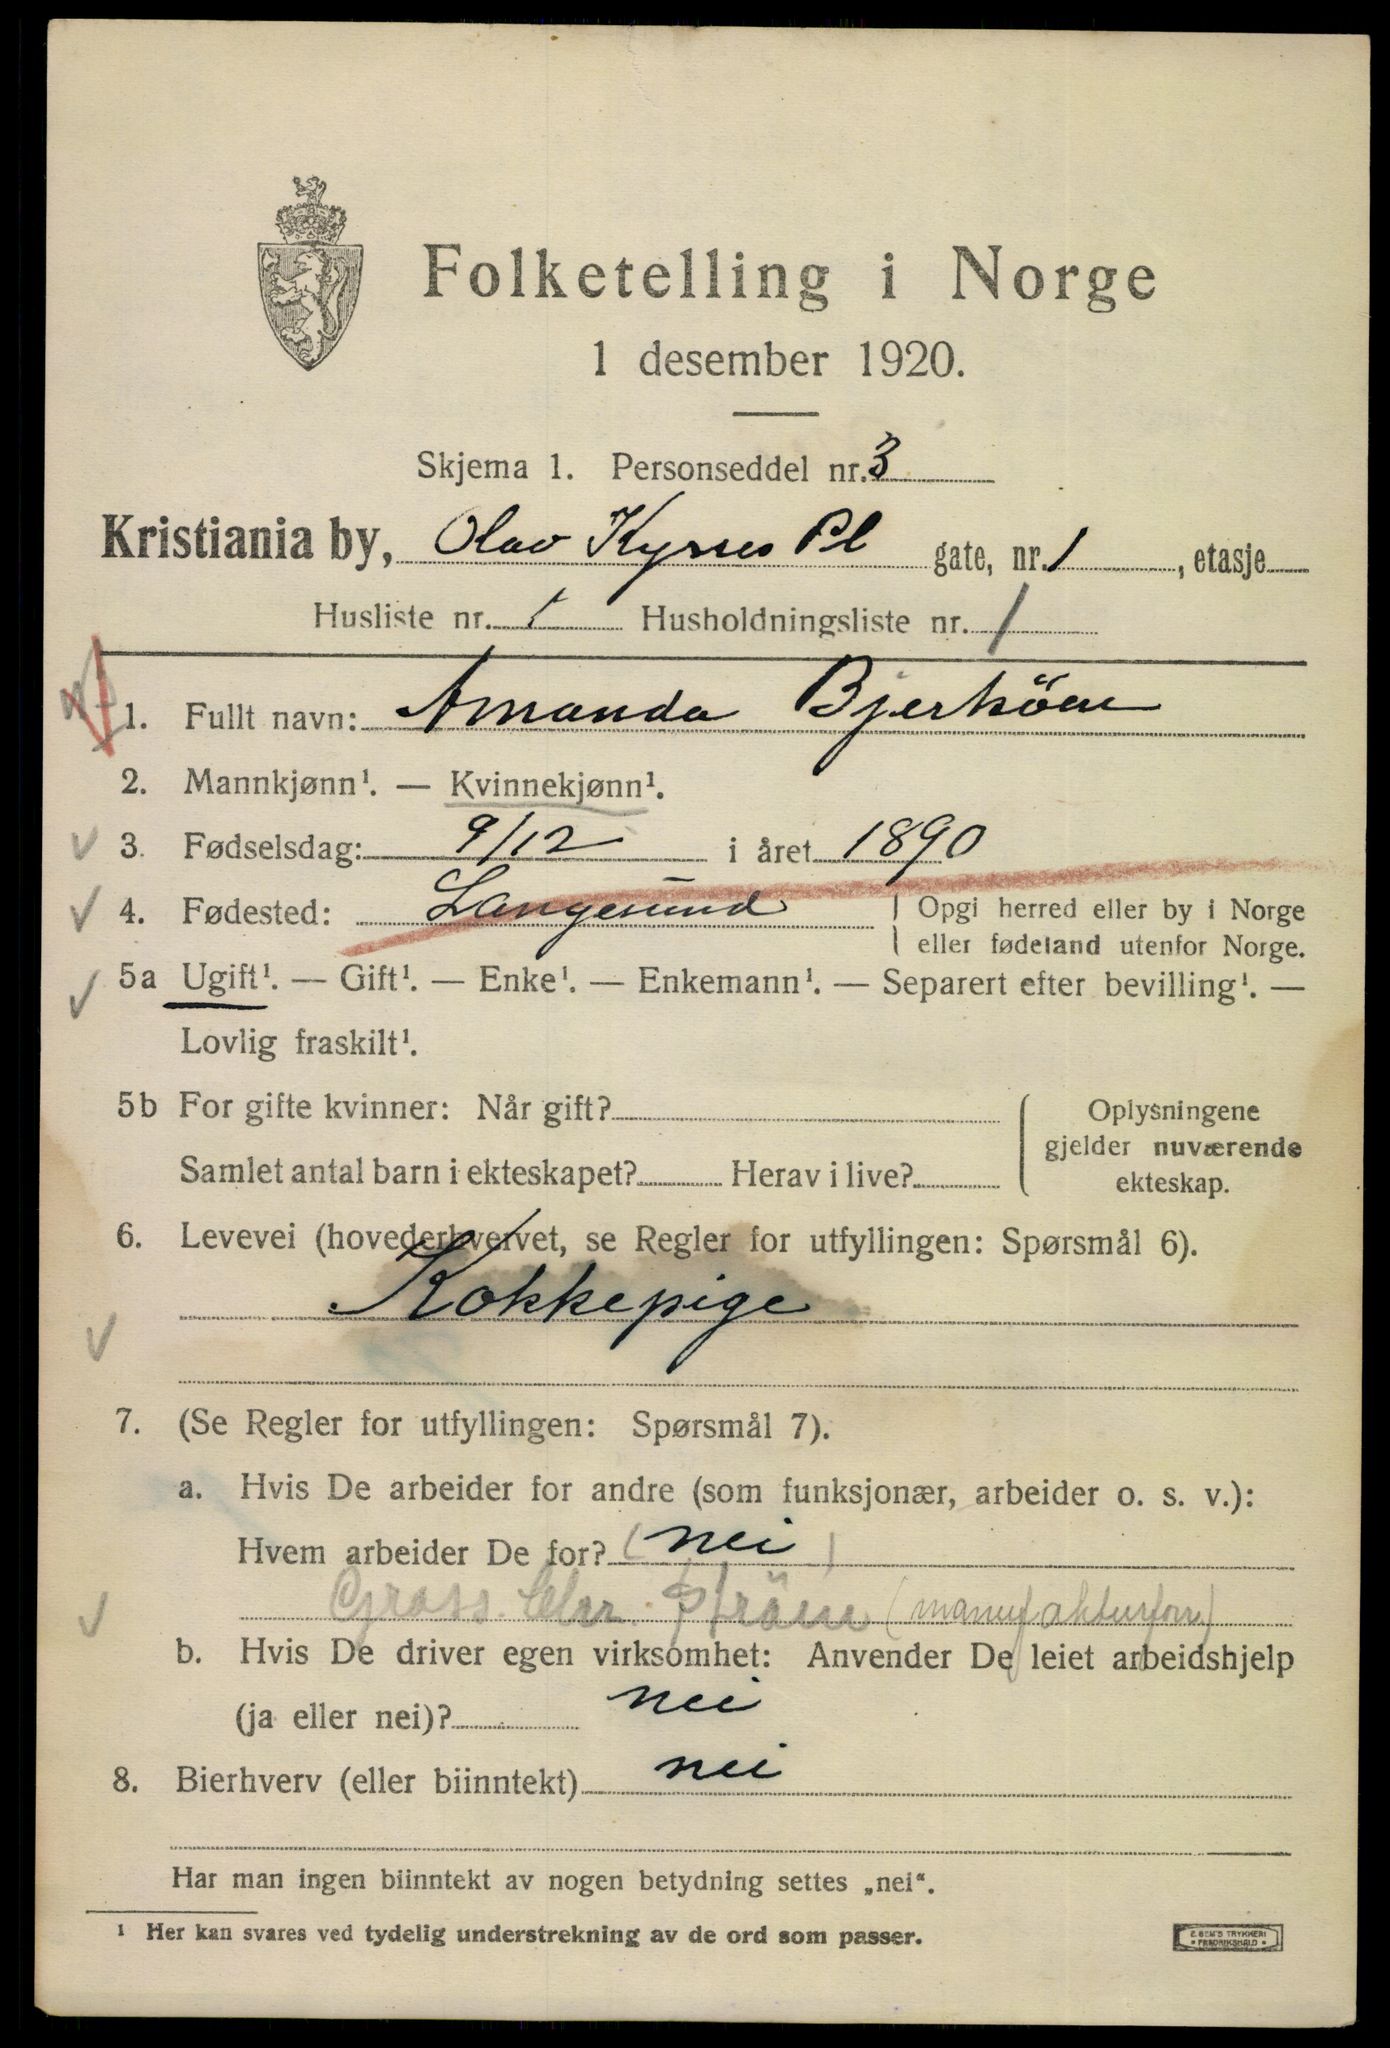 Folketelling i Norge
1 desember 1920.
Skjema 1. Personseddel nr. 3
Kristiania by, Olav Kyrres Pl gate, nr. 1, etasje
Husliste nr. 1 Husholdningsliste nr. 1
1. Fullt navn: Amanda Bjerköen
2. Mannkjønn¹. — Kvinnekjønn¹.
3. Fødselsdag: 9/12 i året 1890
4. Fødested: Langesund Opgi herred eller by i Norge
eller fødeland utenfor Norge.
5a Ugift¹. — Gift¹. — Enke¹. — Enkemann¹. — Separert efter bevilling¹. —
Lovlig fraskilt¹.
5b For gifte kvinner: Når gift? Oplysningene
gjelder nuværende
Samlet antal barn i ekteskapet? Herav i live? ekteskap.
6. Levevei (hovederhvervet, se Regler for utfyllingen: Spørsmål 6).
Kokkepige
7. (Se Regler for utfyllingen: Spørsmål 7).
a. Hvis De arbeider for andre (som funksjonær, arbeider o. s. v.):
Hvem arbeider De for? (nei)
Gross. Chr. (manufakturforr)
b. Hvis De driver egen virksomhet: Anvender De leiet arbeidshjelp
(ja eller nei)? nei
8. Bierhverv (eller biinntekt) nei
Har man ingen biinntekt av nogen betydning settes „nei“.
¹ Her kan svares ved tydelig understrekning av de ord som passer.
E. SEM'S TRYKKERI
FREDRIKSHALD